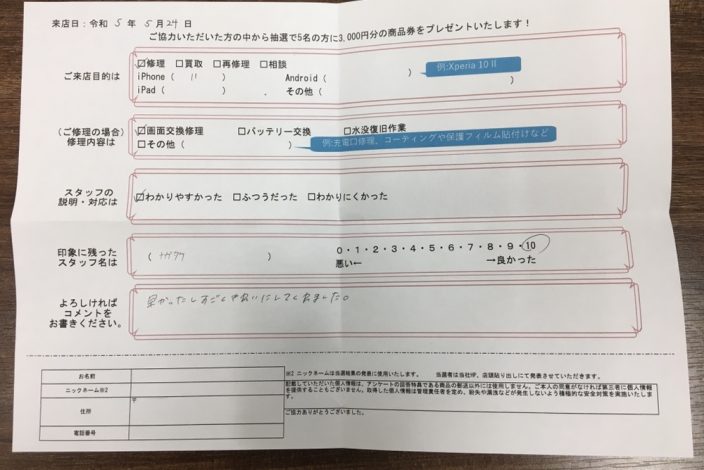 来店日：令和 5 年 5 月 24 日
ご協力いただいた方の中から抽選で5名の方に3,000円分の商品券をプレゼントいたします！
ご来店目的は
☑修理 □買取 □再修理 □相談
iPhone（ 11 ） Android（ ） 例:Xperia 10 Ⅱ
iPad（ ） その他（ ）
（ご修理の場合）
修理内容は
☑画面交換修理 □バッテリー交換 □水没復旧作業
□その他（ ） 例:充電口修理、コーティングや保護フィルム貼付けなど
スタッフの
説明・対応は
☑わかりやすかった □ふつうだった □わかりにくかった
印象に残った
スタッフ名は
（ ）
0・1・2・3・4・5・6・7・8・9・10
悪い← →良かった
よろしければ
コメントを
お書きください。
早かったしすごくていねいにしてくれました。
お名前
ニックネーム※2
住所
〒
電話番号
※2 ニックネームは当選結果の発表に使用いたします。 当選者は当社HP、店頭貼り出しにて発表させていただきます。
記載していただいた個人情報は、アンケートの回答特典である商品の郵送以外には使用しません。ご本人の同意がなければ第三者に個人情報
を提供することもございません。取得した個人情報は管理責任者を定め、紛失や漏洩などが発生しないよう積極的な安全対策を実施いたしま
す。
ご協力ありがとうございました。